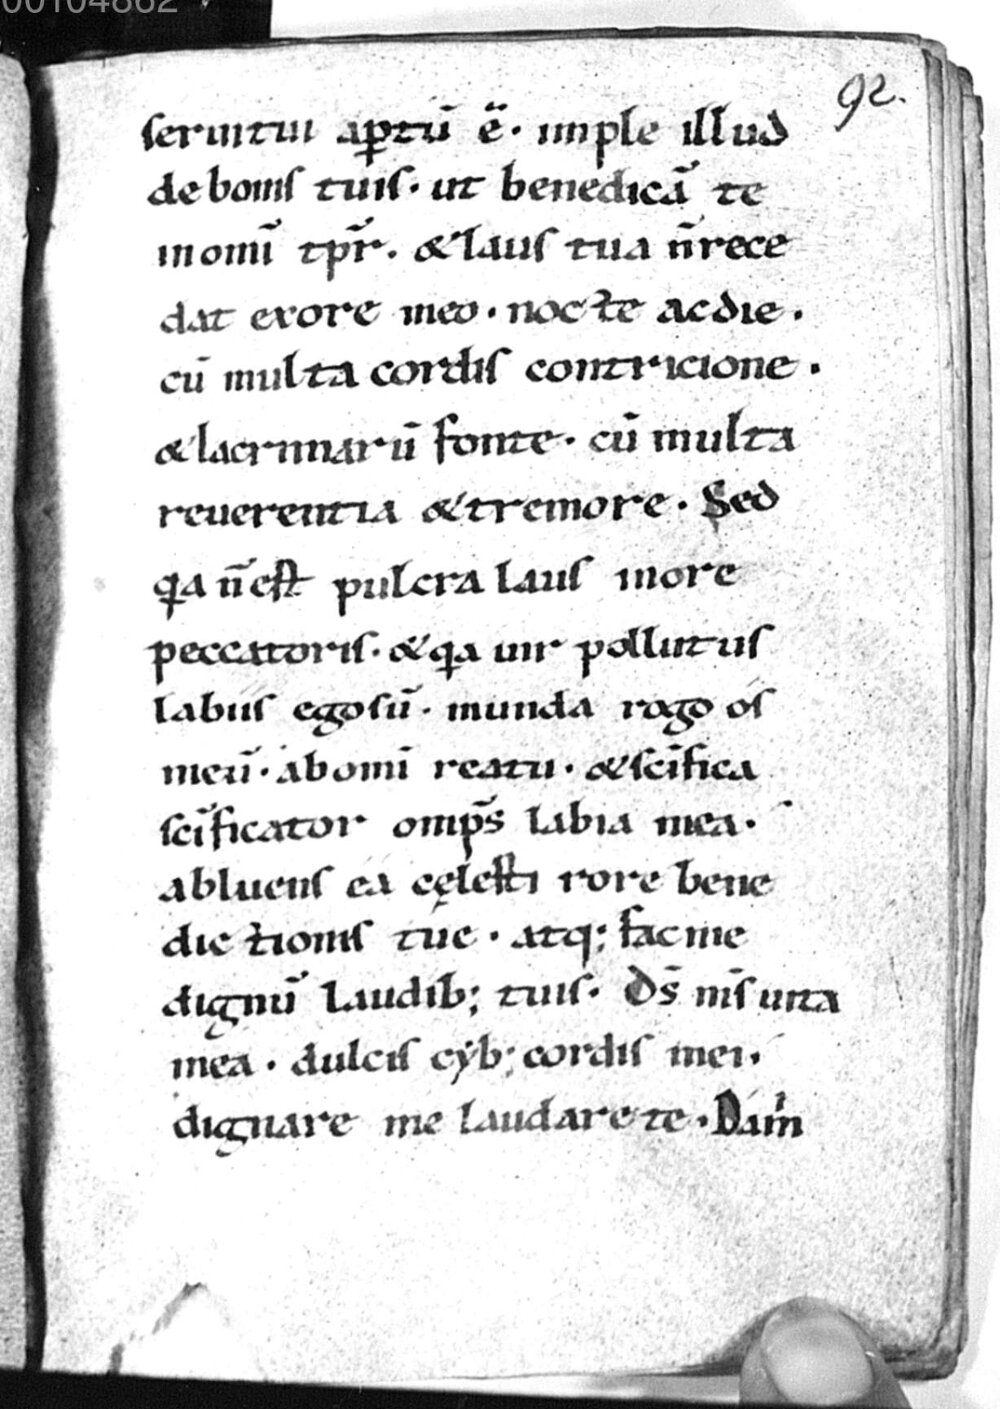 00104862
92.
seruitui aptū ē· imple illud
de bonis tuis· ut benedicā te
in omī tpr̄· & laus tua n̄ rece
dat ex ore meo· nocte ac die·
cū multa cordis contricione·
& lacrimarū fonte· cū multa
reuerentia & tremore· Sed
qa n̄ est pulcra laus in ore
peccatoris· & qa uir pollutus
labiis ego sū· munda rogo os
meū· ab omī reatu· & scīfica
scīficator omps̄ labia mea·
abluens ea cęlesti rore bene
dictionis tue· atq; fac me
dignū laudib; tuis· Ds̄ ms̄ uita
mea· dulcis cyb; cordis mei·
dignare me laudare te· Da m